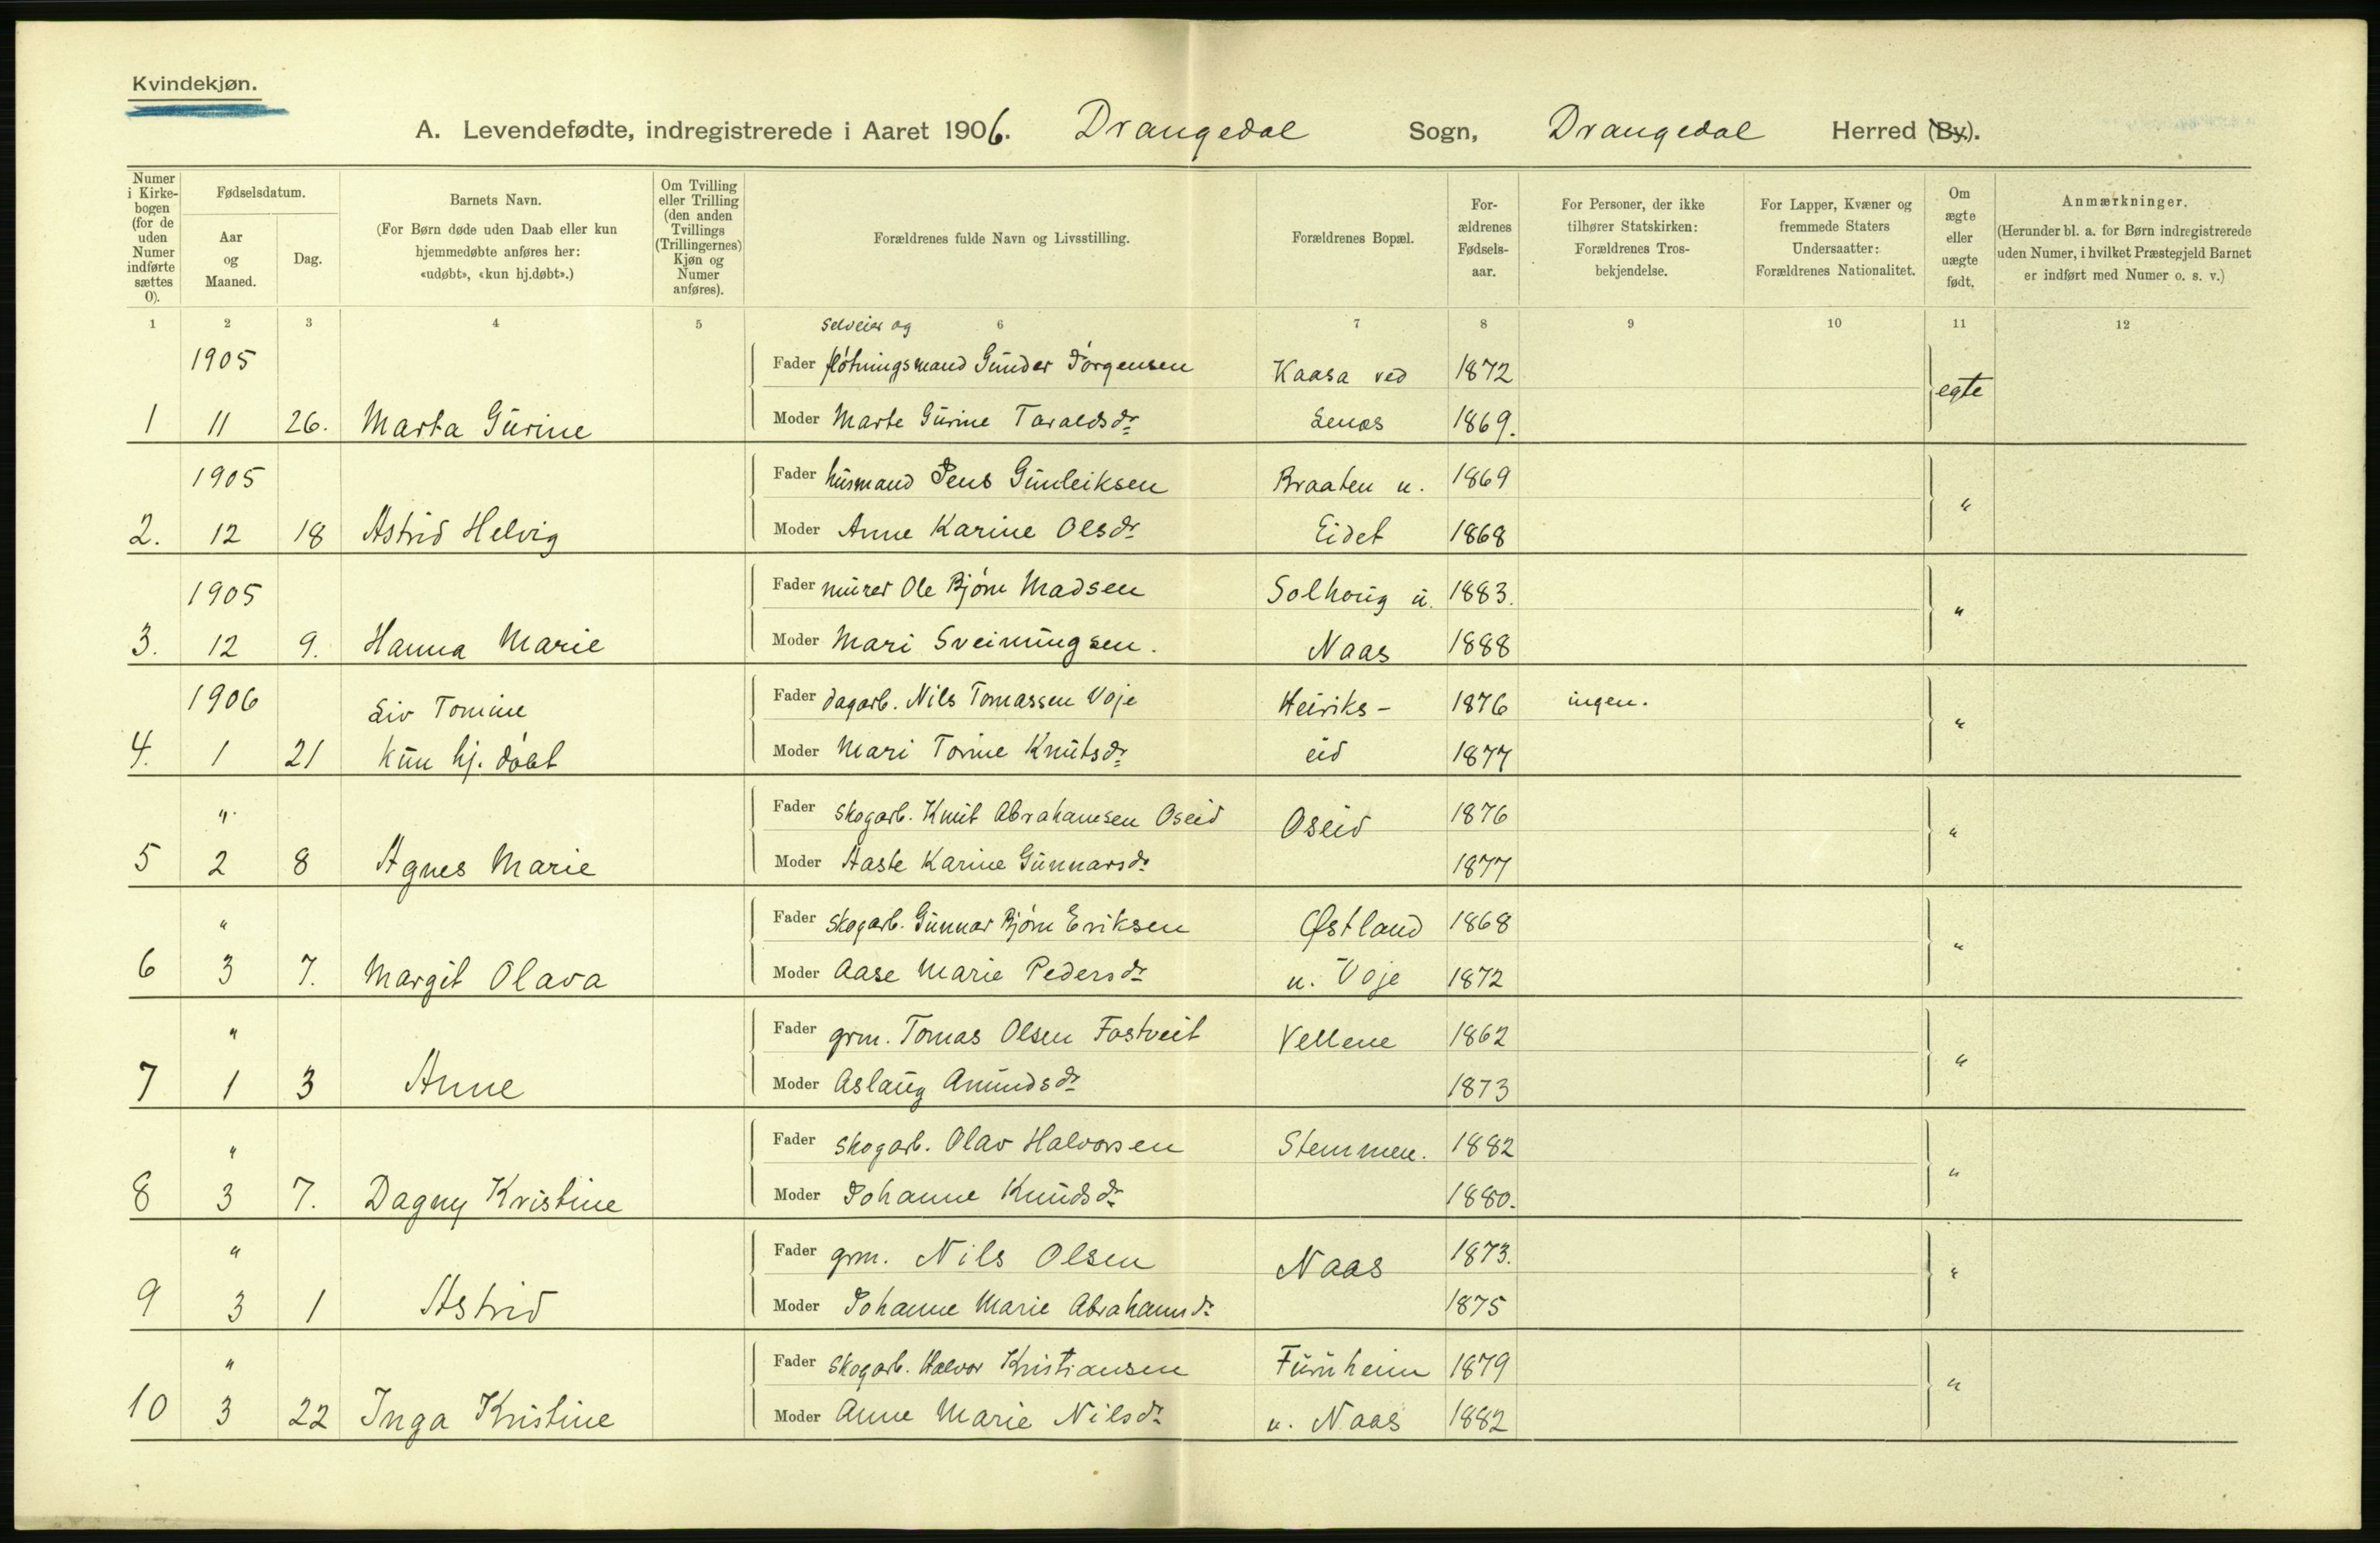 Kvindekjøn.
A. Levendefødte, indregistrerede i Aaret 1906. Drangedal Sogn, Drangedal Herred (By).
Numer i Kirkebogen (for de uden Numer indførte sættes 0).
Fødselsdatum.
Aar og Maaned.
Dag.
Barnets Navn.
(For Børn døde uden Daab eller kun hjemmedøbte anføres her: «udøbt», «kun hj.døbt».)
Om Tvilling eller Trilling (den anden Tvillings (Trillingernes) Kjøn og Numer anføres).
Forældrenes fulde Navn og Livsstilling.
Forældrenes Bopæl.
Forældrenes Fødselsaar.
For Personer, der ikke tilhører Statskirken: Forældrenes Trosbekjendelse.
For Lapper, Kvæner og fremmede Staters Undersaatter: Forældrenes Nationalitet.
Om ægte eller uægte født.
Anmærkninger.
(Herunder bl. a. for Børn indregistrerede uden Numer, i hvilket Præstegjeld Barnet er indført med Numer o. s. v.)
1 2 3 4 5 6 7 8 9 10 11 12
selveier og
1905 Fader fløtningsmand Gunder Jørgensen Kaasa ved 1872 egte
1 11 26. Marta Gurine Moder Marte Gurine Taraldsdr. Lenes 1869.
1905 Fader husmand Jens Gunleiksen Braaten u. 1869 "
2. 12 18 Astrid Helvig Moder Anne Karine Olsdr. Eidet 1868
1905 Fader murer Ole Bjørn Madsen Solhoug u. 1883. "
3. 12 9. Hanna Marie Moder Mari Sveinungsen. Naas 1888
1906 Liv Tomine Fader dagarb. Nils Tomassen Voje Heiriks- 1876 ingen. "
4. 1 21 kun hj. døbt Moder Mari Torine Knutsdr. eid 1877
" Fader skogarb. Knut Abrahamsen Oseid Oseid 1876 "
5 2 8 Agnes Marie Moder Aaste Karine Gunnarsdr. 1877
" Fader skogarb. Gunnar Bjørn Eriksen Østland 1868 "
6 3 7. Margit Olava Moder Aase Marie Pedersdr. u. Voje 1872
" Fader grm. Tomas Olsen Fostveit Vellene 1862 "
7 1 3 Anne Moder Aslaug Amundsdr. 1873
" Fader skogarb. Olav Halvorsen Stemmen. 1882 "
8 3 7. Dagny Kristine Moder Johanne Knudsdr. 1880.
" Fader grm. Nils Olsen Naas 1873. "
9 3 1 Astrid Moder Johanne Marie Abrahamsdr. 1875
" Fader skogarb. Halvor Kristiansen Furuheim 1879 "
10 3 22 Inga Kristine Moder Anne Marie Nilsdr. u. Naas 1882